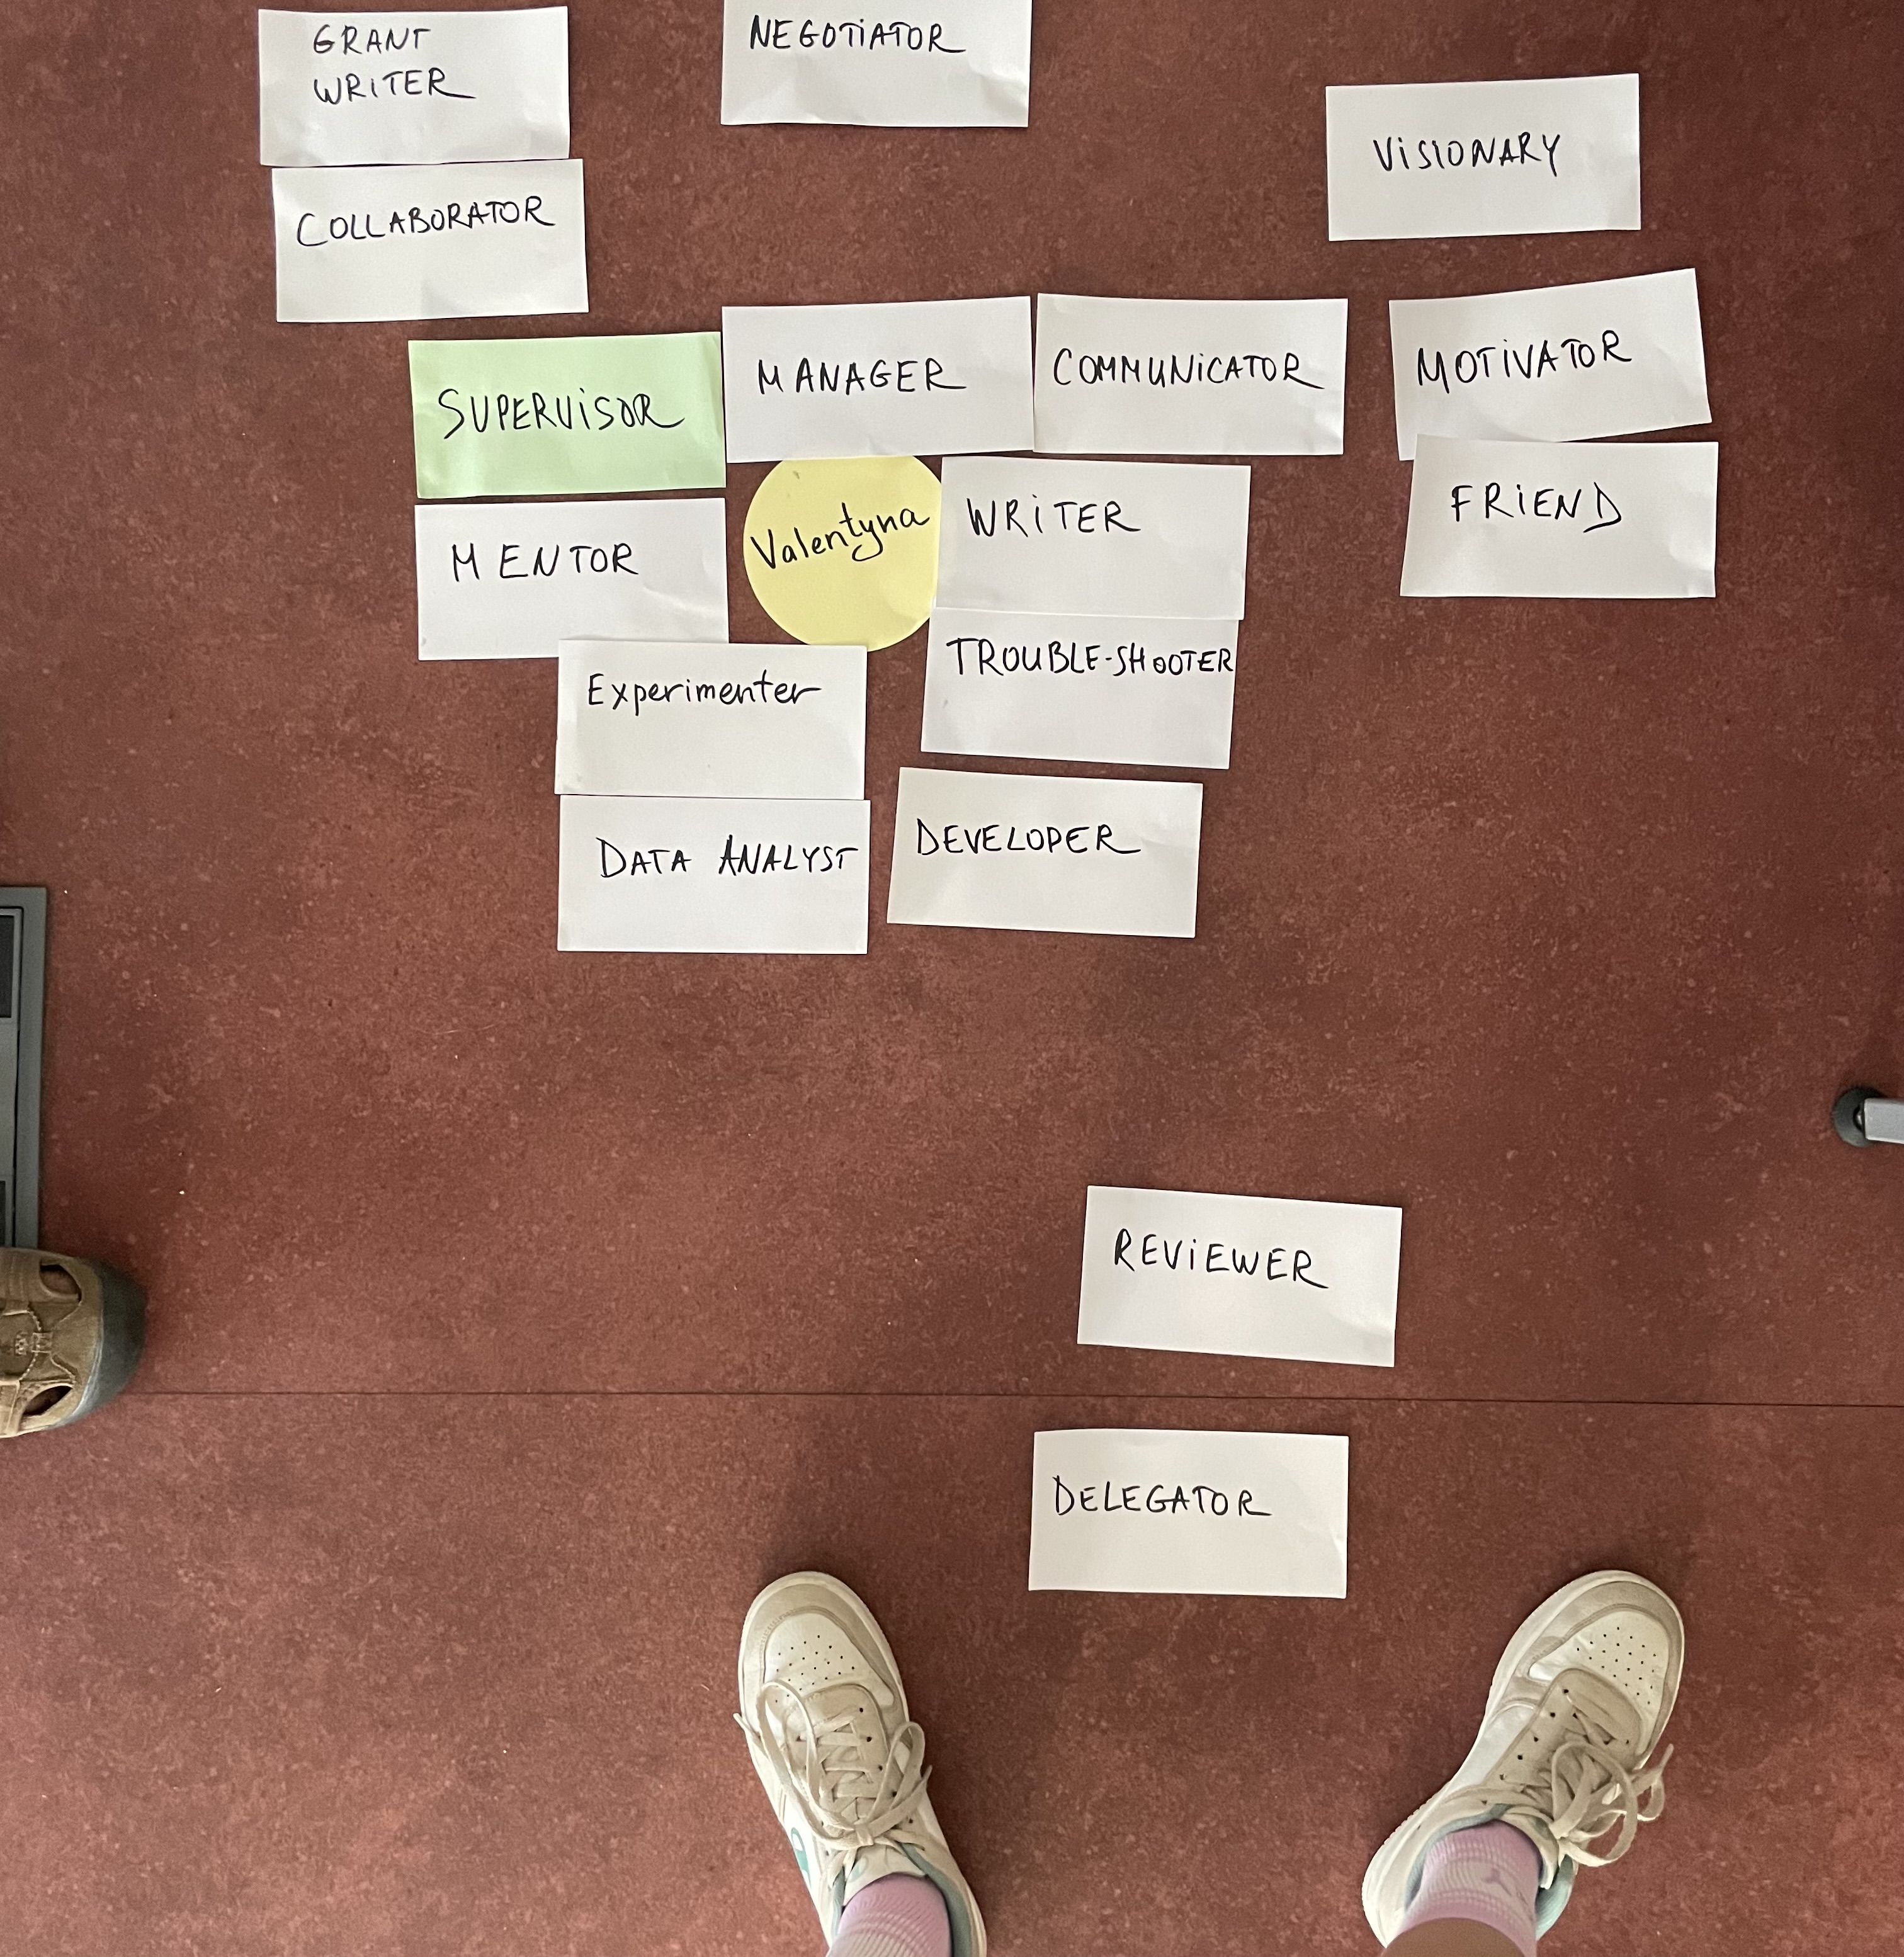 GRANT
WRITER
NEGOTIATOR
VISIONARY
COLLABORATOR
SUPERVISOR
MANAGER
COMMUNICATOR
MOTIVATOR
MENTOR
Valentyna
WRITER
FRIEND
Experimenter
TROUBLE-SHOOTER
DATA ANALYST
DEVELOPER
REVIEWER
DELEGATOR